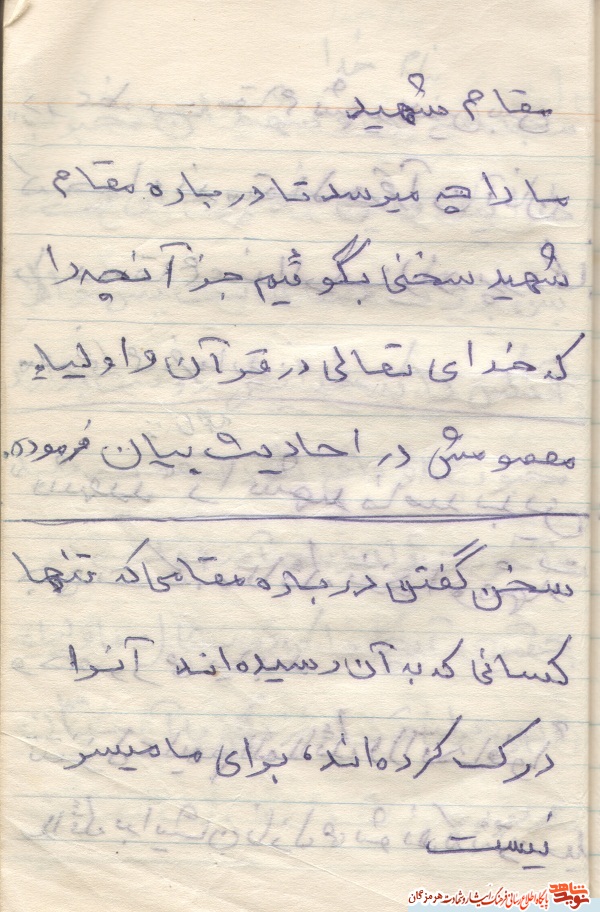 مقام شهید
ما را چه میرسد تا در باره مقام
شهید سخنی بگوئیم جز آنچه را
که خدای تعالی در قرآن و اولیاء
معصومش در احادیث بیان فرموده.
سخن گفتن در باره مقامی که تنها
کسانی که به آن رسیده‌اند آنرا
درک کرده‌اند، برای ما میسر
نیست
نوید شاهد
پایگاه اطلاع رسانی فرهنگ ایثار و شهادت هرمزگان